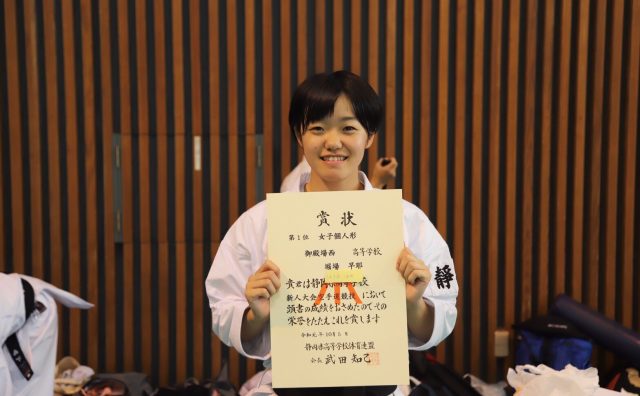 賞状
第1位 女子個人形
御殿場西 高等学校
堀場 早耶
貴君は静岡県高等学校
新人大会空手道競技において
頭書の成績をおさめたのでその
栄誉をたたえこれを賞します
令和元年10月5日
静岡県高等学校体育連盟
会長 武田知己
静